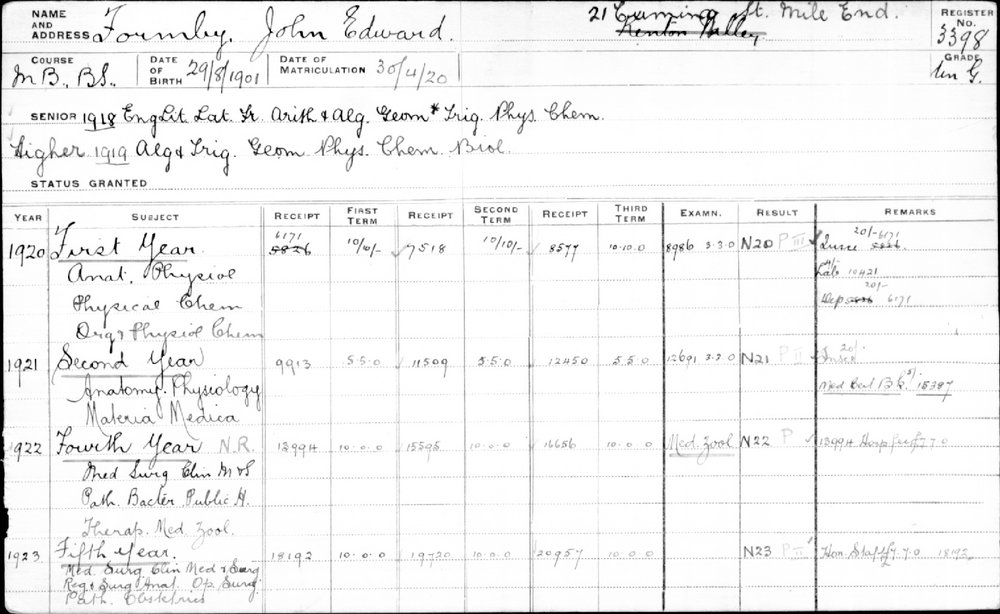 NAME AND ADDRESS Formby, John Edward. 21 Cuming St. Mile End. REGISTER No. 3398
COURSE M.B., B.S., DATE OF BIRTH 29/8/1901 DATE OF MATRICULATION 30/4/20 GRADE
SENIOR 1918 Eng Lit. Lat. Fr. Arith & Alg. Geom* Trig. Phys. Chem.
Higher 1919 Alg & Trig. Geom Phys. Chem. Biol.
STATUS GRANTED
YEAR SUBJECT RECEIPT FIRST TERM RECEIPT SECOND TERM RECEIPT THIRD TERM EXAMN. RESULT REMARKS
1920 First Year. 6171 5826 10/10/- 7518 10/10/- 8577 10.10.0 8986 3.3.0 N20 P III 20/- 6171
Anat. Physiol Lab 10421
Physical Chem 20/-
Org & Physiol Chem Dep 6171
1921 Second Year 9913 5.5.0 11509 5.5.0 12450 5.5.0 12691 3.3.0 N21 P II 20/-
Anatomy. Physiology Med Cert Bk. 5/- 15387
Materia Medica
1922 Fourth Year N.R. 13994 10.0.0 15595 10.0.0 16656 10.0.0 Med. Zool N22 P 13994 Hosp 7.7.0
Med Surg Clin M & S
Path. Bacter. Public H.
Therap. Med. Zool.
1923 Fifth Year. 18192 10.0.0 19720 10.0.0 20957 10.0.0 N23 P II Hon. Staff £7.7.0 18192
Med Surg Clin Med & Surg
Reg & Surg Anat. Op. Surg.
Path. Obstetrics